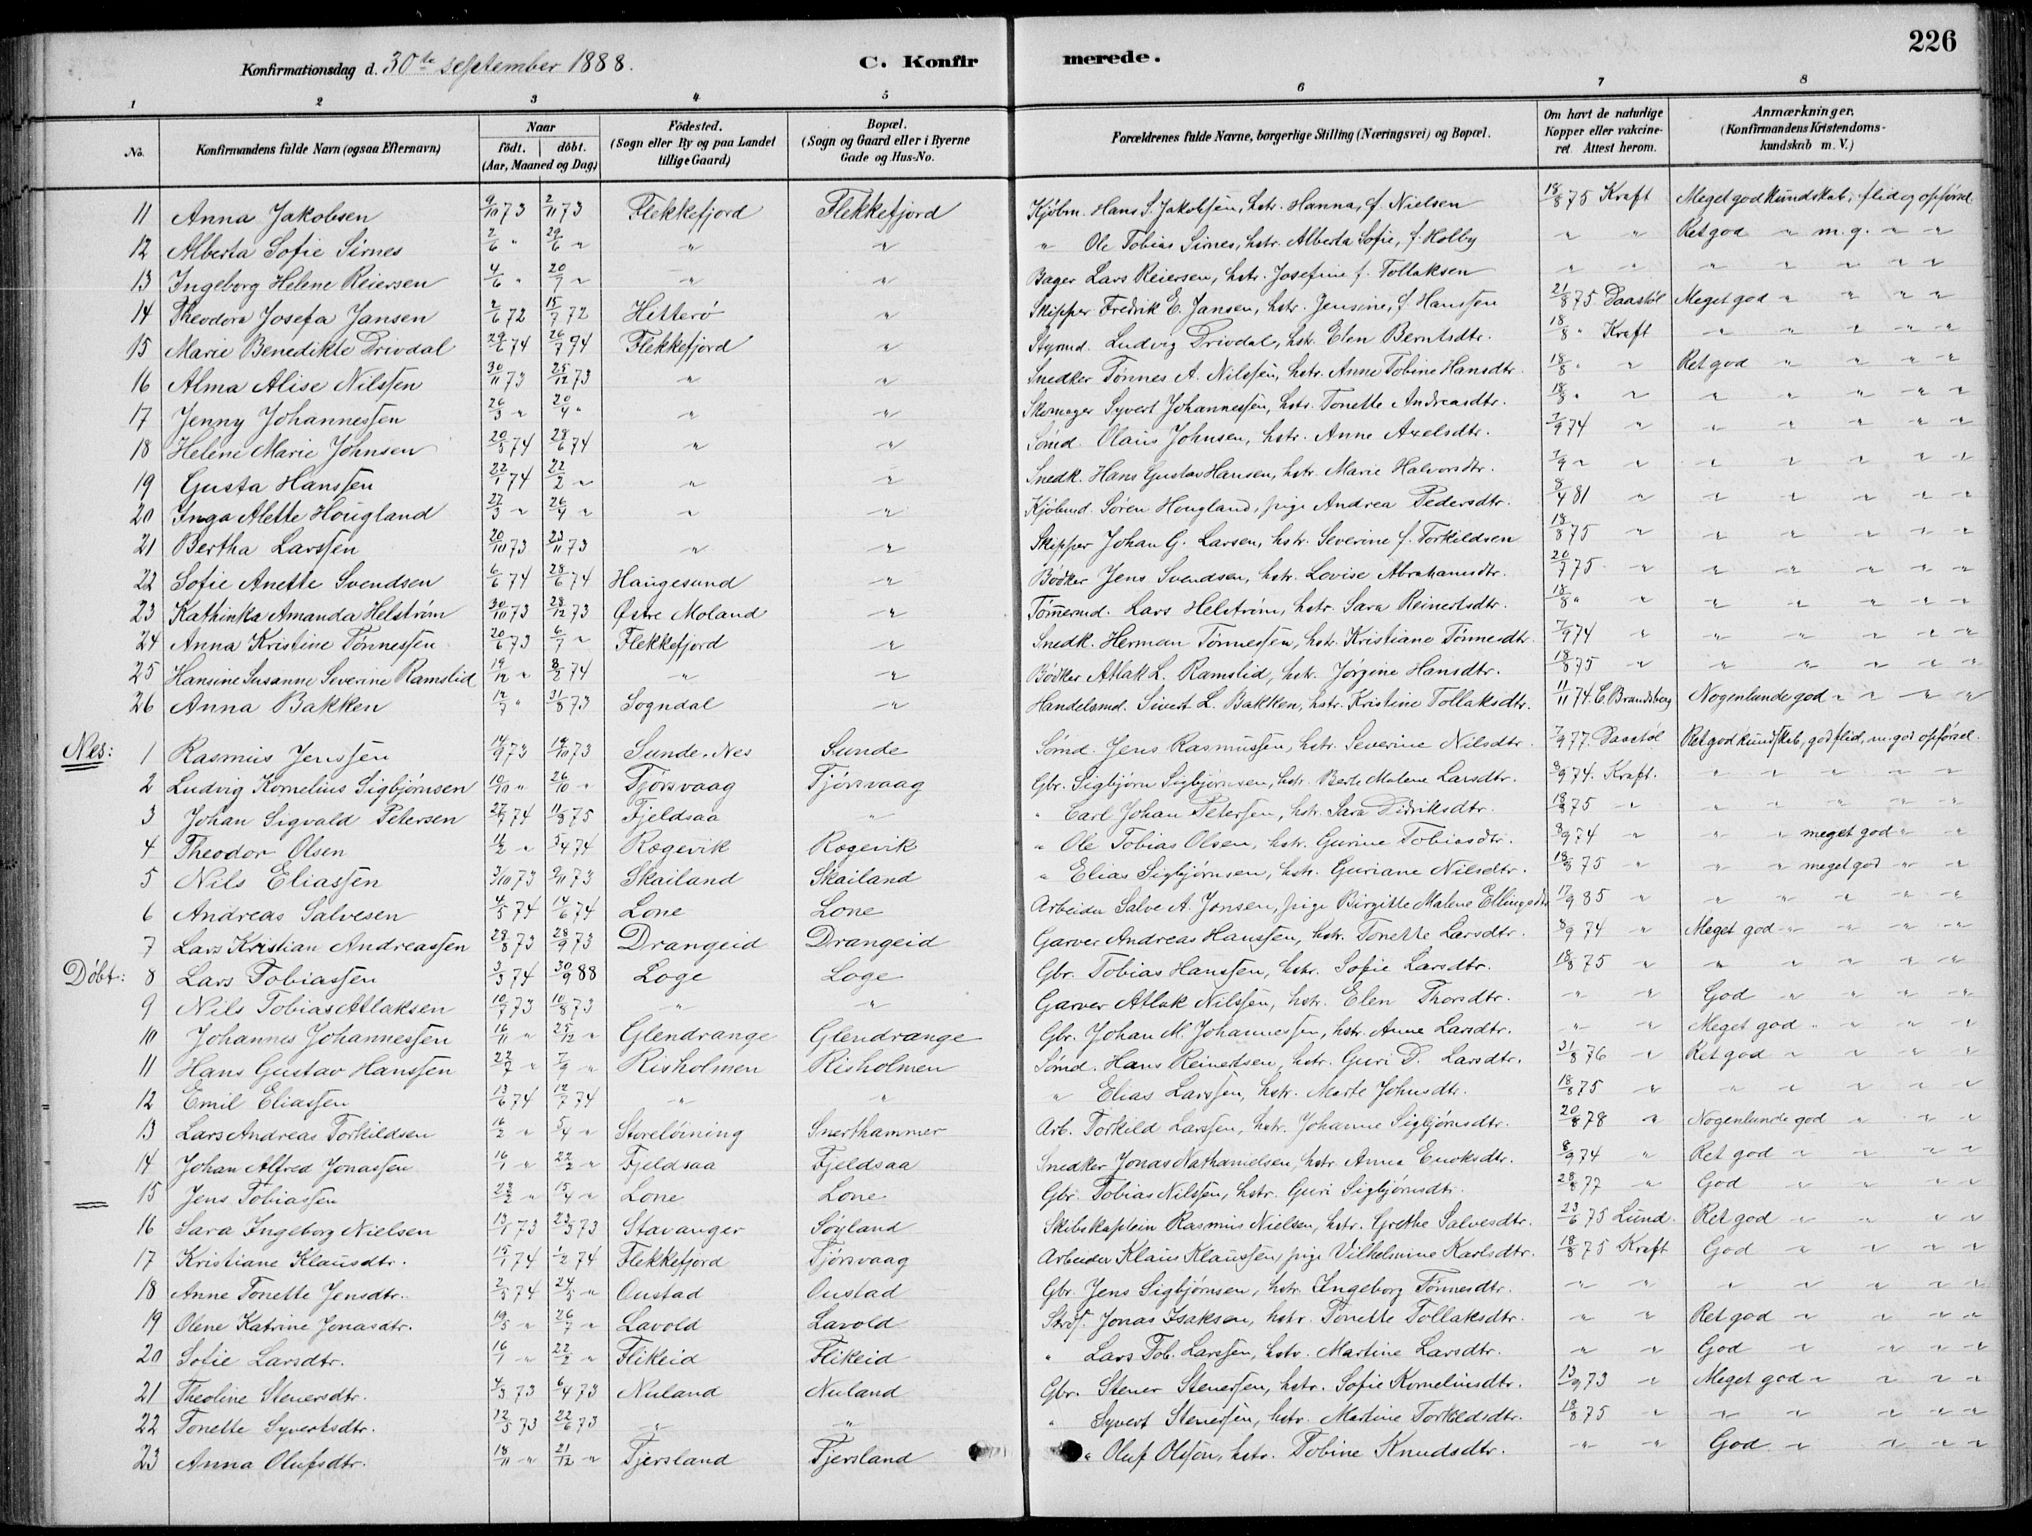 226
Konfirmationsdag d. 30te september 1888. C. Konfirmerede.
1 2 3 4 5 6 7 8
No. Konfirmandens fulde Navn (ogsaa Efternavn) Naar født. døbt. (Aar, Maaned og Dag) Fødested. (Sogn eller By og paa Landet tillige Gaard) Bopæl. (Sogn og Gaard eller i Byerne Gade og Hus-No. Forældrenes fulde Navne, borgerlige Stilling (Næringsvei) og Bopæl. Om havt de naturlige Kopper eller vakcineret. Attest herom. Anmærkninger, (Konfirmandens Kristendomskundskab m. V.)
11 Anna Jakobsen 9/10 73 2/11 73 Flekkefjord Flekkefjord Kjøbm. Hans S. Jakobsen, hstr. Hanna, f. Nielsen 18/8 75 Kraft Meget god kundskab, flid og opførsel
12 Alberta Sofie Sirnes 2/6 " 29/6 " " " " Ole Tobias Sirnes, hstr. Alberta Sofie, f. Kolby " " Ret god " m.g. " "
13 Ingeborg Helene Reiersen 4/6 " 20/7 " " " Bager Lars Reiersen, hstr. Josefine f. Tollaksen " " " " " " "
14 Theodora Josefa Jansen 2/6 72 15/7 72 Hitterø " Skipper Fredrik E. Jansen, hstr. Jensine, f. Hanssen 21/8 75 Daastøl Meget god " " " "
15 Marie Benedikte Drivdal 29/6 74 26/7 94 Flekkefjord " Styrmd. Ludvig Drivdal, hstr. Elen Berntsdtr. 18/8 " Kraft " " " " "
16 Alma Alise Nilssen 30/11 73 25/12 73 " " Snedker Tønnes A. Nilssen, hstr. Anne Tobine Hansdtr. 18/8 " " Ret god " " " "
17 Jenny Johannessen 26/3 " 20/4 " " " Skomager Syvert Johannessen, hstr. Tonette Andreasdtr. 18/8 " " " " " " "
18 Helene Marie Johnsen 20/5 74 28/6 74 " " Sømd. Olaus Johnsen, hstr. Anne Axelsdtr. 7/9 74 " " " " " "
19 Gusta Hanssen 22/1 74 22/2 " " " Snedk. Hans Gustav Hansen, hstr. Marie Halvorsdtr. 7/9 " " " " " " "
20 Inga Alette Hougland 27/3 " 26/4 " " " Kjøbmd. Søren Hougland, pige Andrea Pedersdtr. 8/4 81 " " " " " "
21 Bertha Larssen 20/10 73 23/11 73 " " Skipper Johan G. Larsen, hstr. Severine f. Torkildsen 18/8 75 " " " " " "
22 Sofie Anette Svendsen 6/6 74 28/6 74 Haugesund " Bødker Jens Svendsen, hstr. Lovise Abrahamsdtr. 20/7 75 " " " " " "
23 Kathinka Amanda Helstrøm 30/10 73 28/12 73 Østre Moland " Tømermd. Lars Helstrøm, hstr. Sara Reinertsdtr. 18/8 " " " " " " "
24 Anna Kristine Tønnessen 20/6 73 6/7 " Flekkefjord " Snedk. Herman Tønnessen, hstr. Kristiane Tønnesdtr. 7/9 74 " " " " " "
25 Hansine Susanne Severine Ramslid 19/12 " 8/2 74 " " Bødker Atlak L. Ramslid, hstr. Jørgine Hansdtr. 18/8 75 " " " " " "
26 Anna Bakken 12/7 " 31/8 73 Sogndal " Handelsmd. Sivert L. Bakken, hstr. Kristine Tollaksdtr. 11/11 74 C. Brandsberg Nogenlunde god " " " "
Nes: 1 Rasmus Jenssen 14/9 73 19/10 73 Sunde. Nes Sunde Sømd. Jens Rasmussen, hstr. Severine Nilsdtr. 7/9 77. Daastøl Ret god kundskab, god flid, m. god opførsel.
2 Ludvig Kornelius Sigbjørnsen 10/10 " 26/10 " Tjørsvaag Tjørsvaag Gbr. Sigbjørn Sigbjørnsen, hstr. Berte Malene Larsdtr. 8/9 74. Kraft. " " " " "
3 Johan Sigvald Petersen 27/7 74 11/8 75 Fjeldsaa " " Carl Johan Petersen, hstr. Sara Didriksdtr. 18/8 75 " " " " " "
4 Theodor Olsen 11/2 " 5/4 74 Røgevik Røgevik " Ole Tobias Olsen, hstr. Gurine Tobiasdtr. 8/9 74 " " " meget god " "
5 Nils Eliassen 3/10 73 9/11 73 Skailand Skailand " Elias Sigbjørnsen, hstr. Guriane Nilsdtr. 18/8 75 " " " meget god " "
6 Andreas Salvesen 4/5 74 14/6 74 Lone Lone Arbeider Salve A. Jonsen, pige Birgitte Malene Ellingsdtr. 17/9 85 " " " " " "
7 Lars Kristian Andreassen 28/8 73 28/9 73 Drangeid Drangeid Garver Andreas Hanssen, hstr. Tonette Larsdtr. 8/9 74 " Meget god " " " "
Døbt: 8 Lars Tobiassen 3/3 74 30/9 88 Loge Loge Gbr. Tobias Hanssen, hstr. Sofie Larsdtr. 18/8 75 " " " " " "
9 Nils Tobias Atlaksen 10/7 73 10/8 73 " " Garver Atlak Nilssen, hstr. Elen Thorsdtr. " " God " " " "
10 Johannes Johannessen 16/11 " 25/12 " Glendrange Glendrange Gbr. Johan M. Johannessen, hstr. Anne Larsdtr. " " Meget god " " " "
11 Hans Gustav Hanssen 22/7 " 7/9 " Risholmen Risholmen Sømd. Hans Reinertsen, hstr. Guri D. Larsdtr. 31/8 76 " Ret god " " " "
12 Emil Eliassen 13/6 74 12/7 74 " " " Elias Larssen, hstr. Marte Johnsdtr. 18/8 75 " " " " " "
13 Lars Andreas Torkildsen 16/2 " 5/4 " Storeløining Snerthammer Arb. Torkild Larssen, hstr. Johanne Sigbjørnsdtr. 20/8 78 " Nogenlunde god " " " "
14 Johan Alfred Jonassen 16/1 " 22/2 " Fjeldsaa Fjeldsaa Snedker Jonas Nathanielsen, hstr. Anna Enoksdtr. 8/9 74 " Ret god " " " "
15 Jens Tobiassen 22/2 " 15/4 " Lone Lone Gbr. Tobias Nilssen, hstr. Guri Sigbjørnsdtr. 28/8 77 " God " " " "
16 Sara Ingeborg Nielsen 13/1 73 23/3 73 Stavanger Søyland Skibskaptein Rasmus Nielsen, hstr. Grethe Salvesdtr. 23/6 75 Lund. Ret god " " " "
17 Kristiane Klausdtr. 15/1 74 1/2 74 Flekkefjord Tjørsvaag Arbeider Klaus Klaussen, pige Vilhelmine Karlsdtr. 18/8 75 Kraft God " " " "
18 Anne Tonette Jensdtr. 2/5 74 24/5 " Oustad Oustad Gbr. Jens Sigbjørnsen, hstr. Ingeborg Tønnesdtr. " " " " " " "
19 Olene Katrine Jonasdtr. 19/5 " 26/7 " Lavold Lavold Strøf. Jonas Isaksen, hstr. Tonette Tollaksdtr. " " Ret god " " " "
20 Sofie Larsdtr. 16/1 " 22/2 " Flikeid Flikeid " Lars Tob. Larssen, hstr. Martine Larsdtr. " " God " " " "
21 Theoline Stenersdtr. 4/3 73 6/4 73 Nuland Nuland Gbr. Stener Stenersen, hstr. Sofie Korneliusdtr. 13/9 73 " Meget god " " " "
22 Tonette Syvertsdtr. 12/5 73 22/6 73 " " " Syvert Stenersen, hstr. Martine Torkildsdtr. 18/8 75 " " " " " "
23 Anna Olufsdtr. 18/11 " 21/12 " Tjersland Tjersland " Oluf Olsson, hstr. Tobine Knudsdtr. " " God " " " "